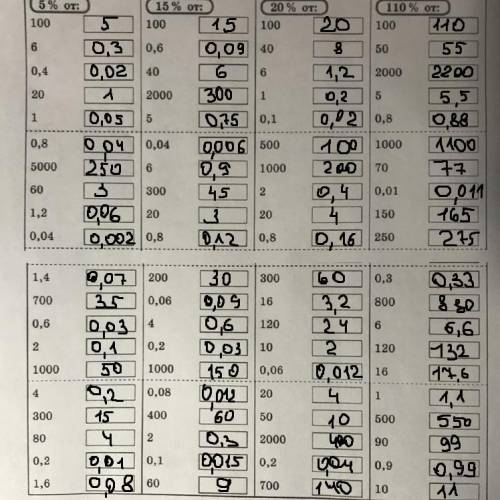 5 % от: 15 % от: 20 % от: 110 % от:
100 5 100 15 100 20 100 110
6 0,3 0,6 0,09 40 8 50 55
0,4 0,02 40 6 6 1,2 2000 2200
20 1 2000 300 1 0,2 5 5,5
1 0,05 5 0,75 0,1 0,02 0,8 0,88
0,8 0,04 0,04 0,006 500 100 1000 1100
5000 250 6 0,9 1000 200 70 77
60 3 300 45 2 0,4 0,01 0,011
1,2 0,06 20 3 20 4 150 165
0,04 0,002 0,8 0,12 0,8 0,16 250 275
1,4 0,07 200 30 300 60 0,3 0,33
700 35 0,06 0,09 16 3,2 800 880
0,6 0,03 4 0,6 120 24 6 6,6
2 0,1 0,2 0,03 10 2 120 132
1000 50 1000 150 0,06 0,012 16 17,6
4 0,2 0,08 0,012 20 4 1 1,1
300 15 400 60 50 10 500 550
80 4 2 0,3 2000 400 90 99
0,2 0,01 0,1 0,015 0,2 0,04 0,9 0,99
1,6 0,08 60 9 700 140 10 11